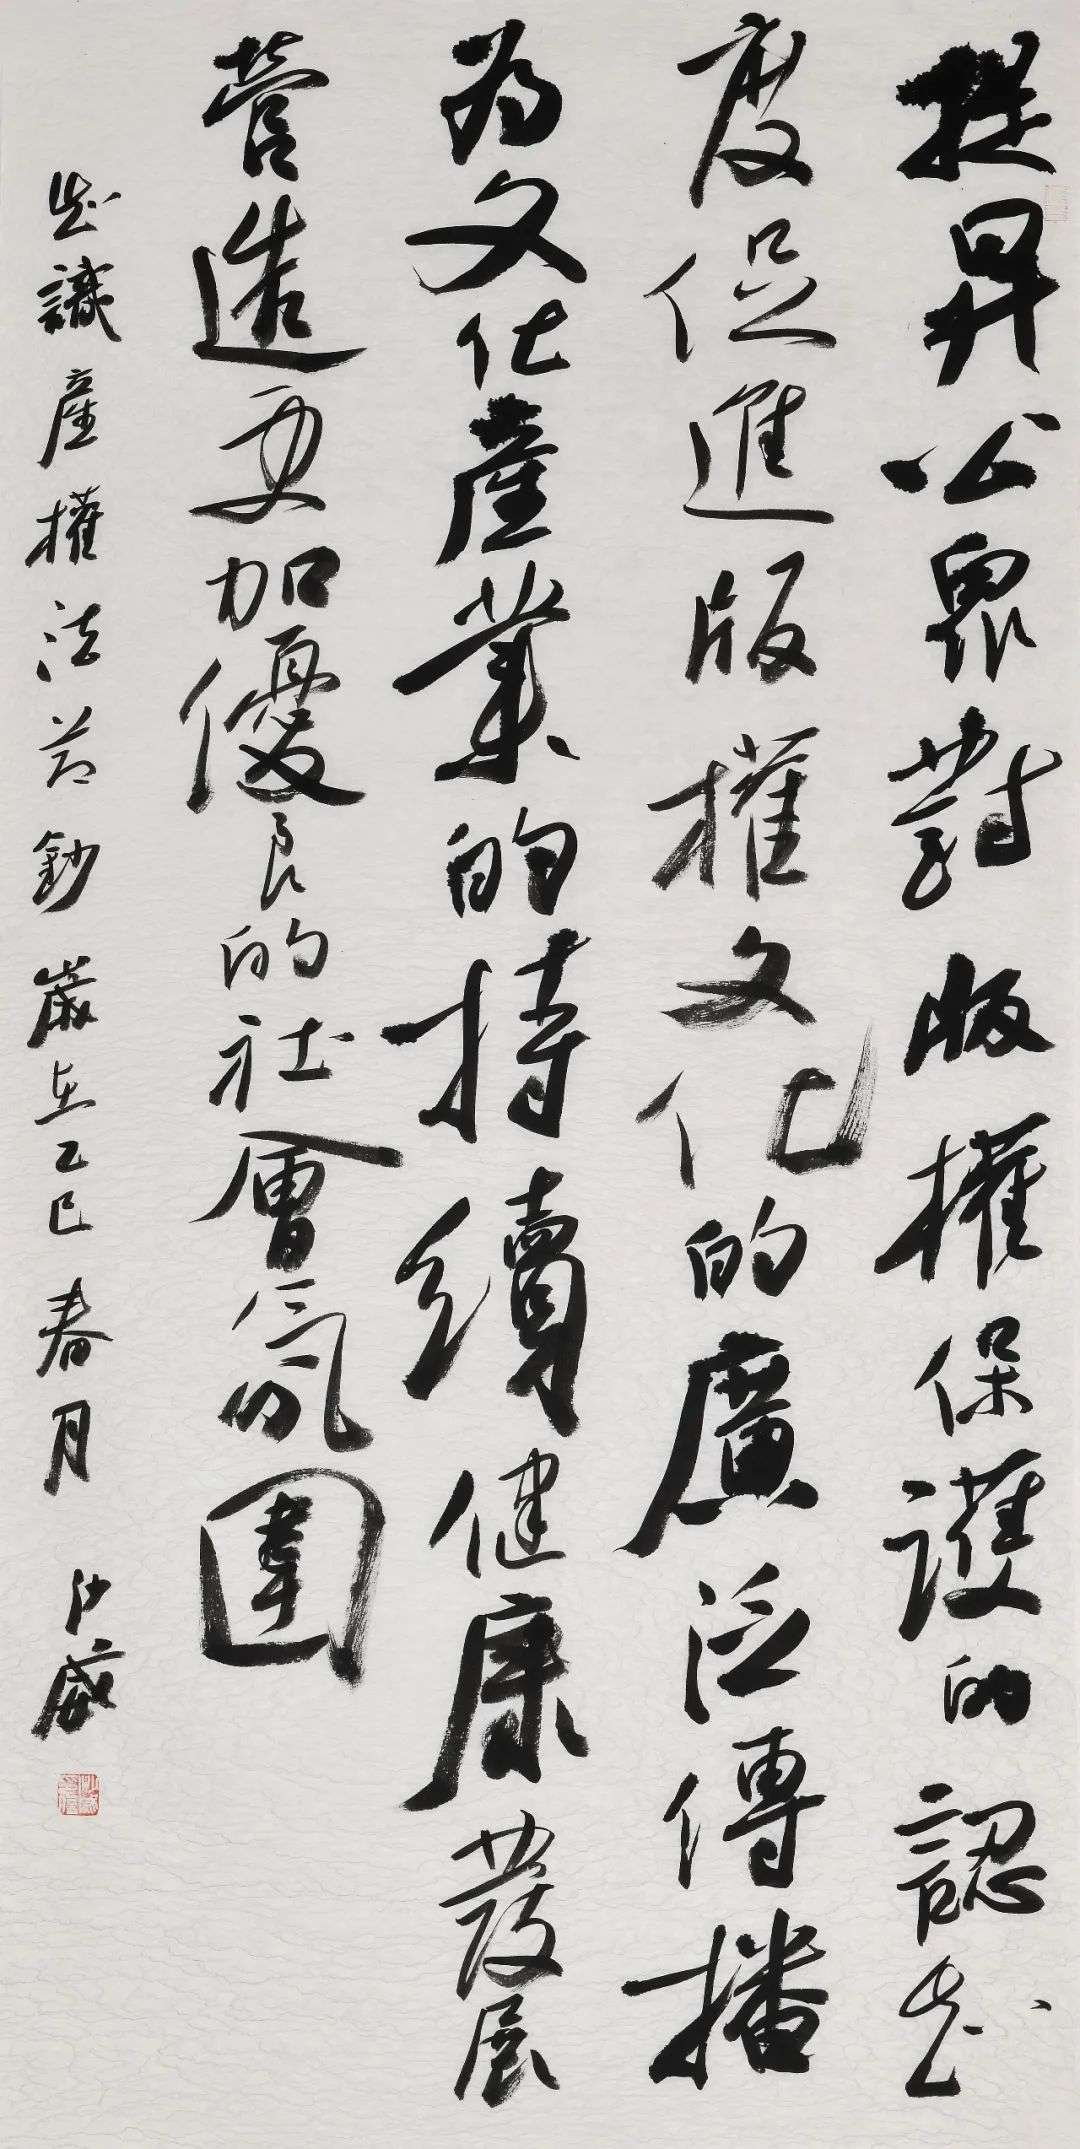 提昇公眾對版權保護的認知
度促進版權文化的廣泛傳播
為文化產業的持續健康發展
營造更加優良的社會氛圍
知識產權法節鈔 歲在乙巳春月 沙威